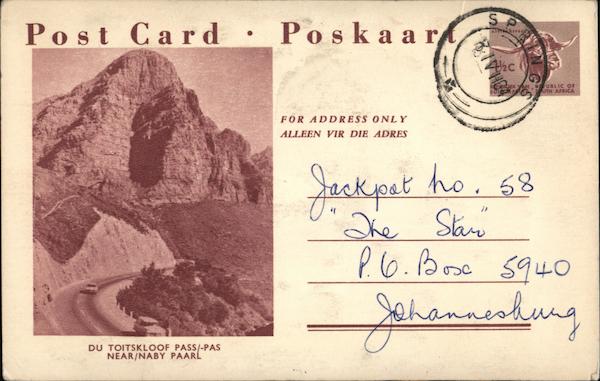 Post Card · Poskaart
SPRINGS
½ C
REPUBLIC OF
SOUTH AFRICA
FOR ADDRESS ONLY
ALLEEN VIR DIE ADRES
Jackpot no. 58
"The Star"
P.O. Box 5940
Johannesburg
DU TOITSKLOOF PASS/-PAS
NEAR/NABY PAARL